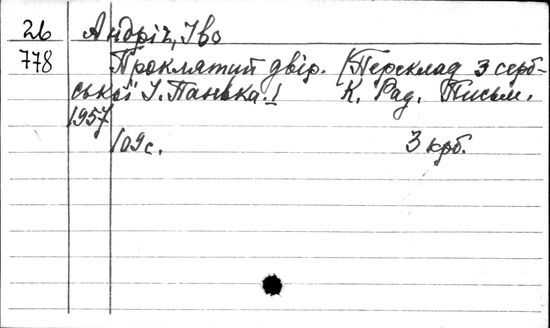 26 Андріч, Іво
778 Проклятий двір. [Переклад з серб-
ської І. Панька.] К. Рад. Письм.
1957
109 с. 3 крб.